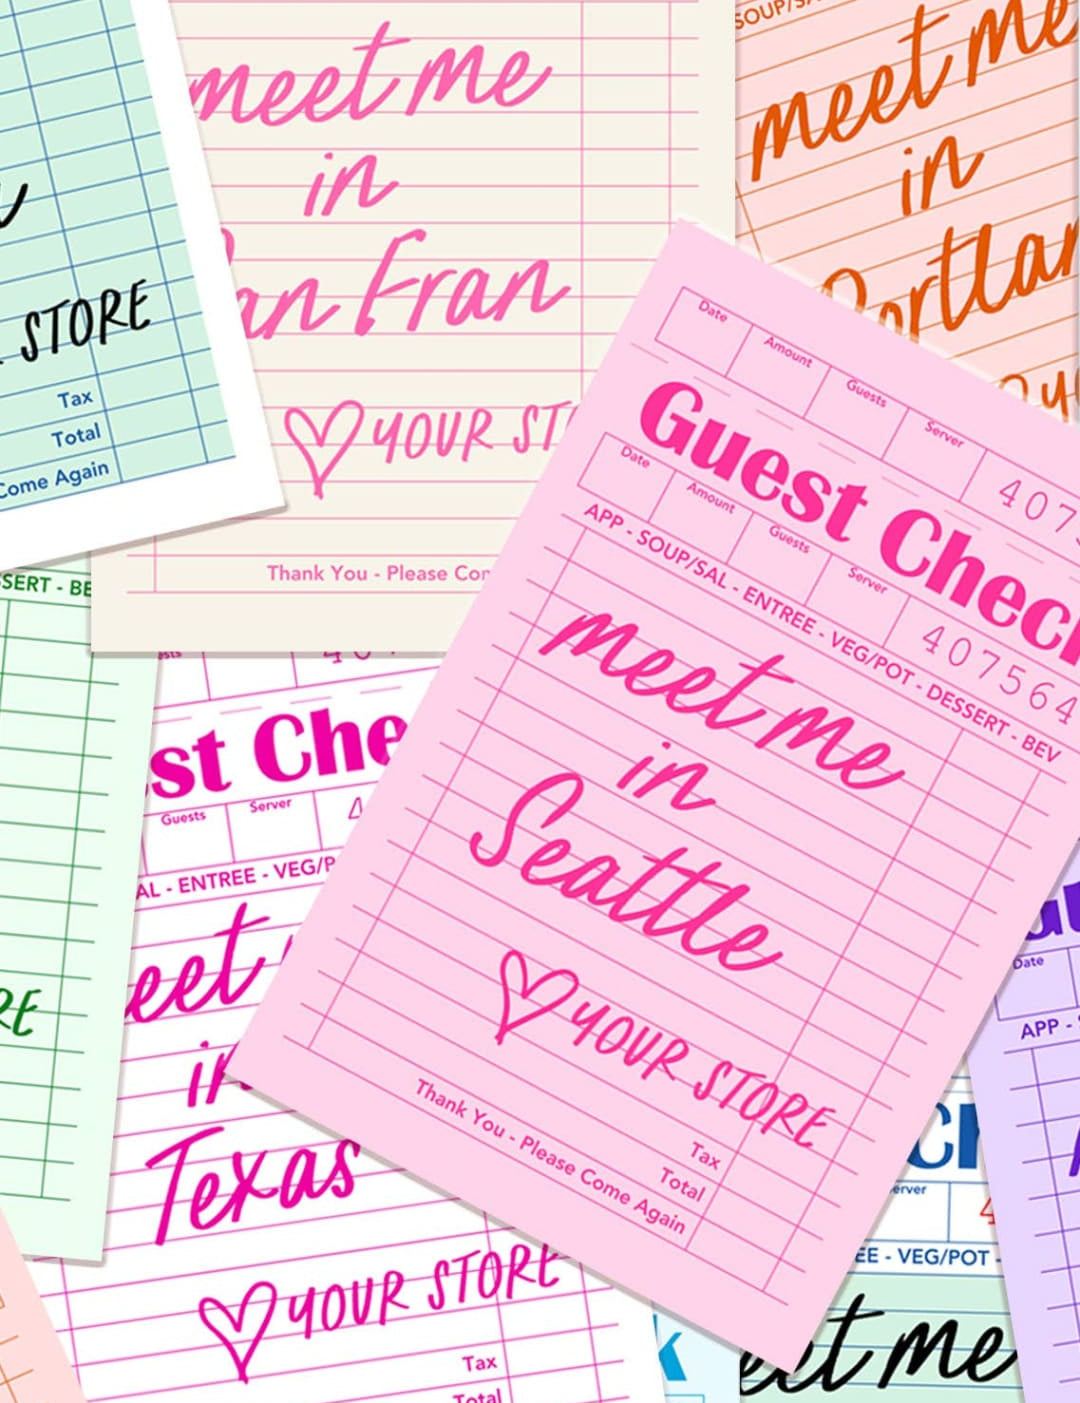 STORE
Tax
Total
Come Again
meet me
in
San Fran
YOUR ST
Thank You - Please Com
SOUP/SA
meet me
in
Portlan
YO
Date Amount Guests Server 4075
Guest Check
Date Amount Guests Server 407564
APP - SOUP/SAL - ENTREE - VEG/POT - DESSERT - BEV
meet me
in
Seattle
YOUR STORE
Tax
Thank You - Please Come Again Total
SSERT - BE
RE
st Che
Guests Server 4
AL - ENTREE - VEG/P
eet
in
Texas
YOUR STORE
Tax
Total
Gu
Date
APP -
Ch
erver 4
EE - VEG/POT -
eet me
k